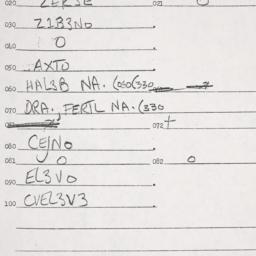 020 021 0
030 Z1B3NO
010 0
050 AXTO
060 HAL3B NA. (050(330
070 DRA, FERTL NA.(330
072 +
080 CEJNO
081 0 082 0
090 EL3VO
100 CVEL3V3